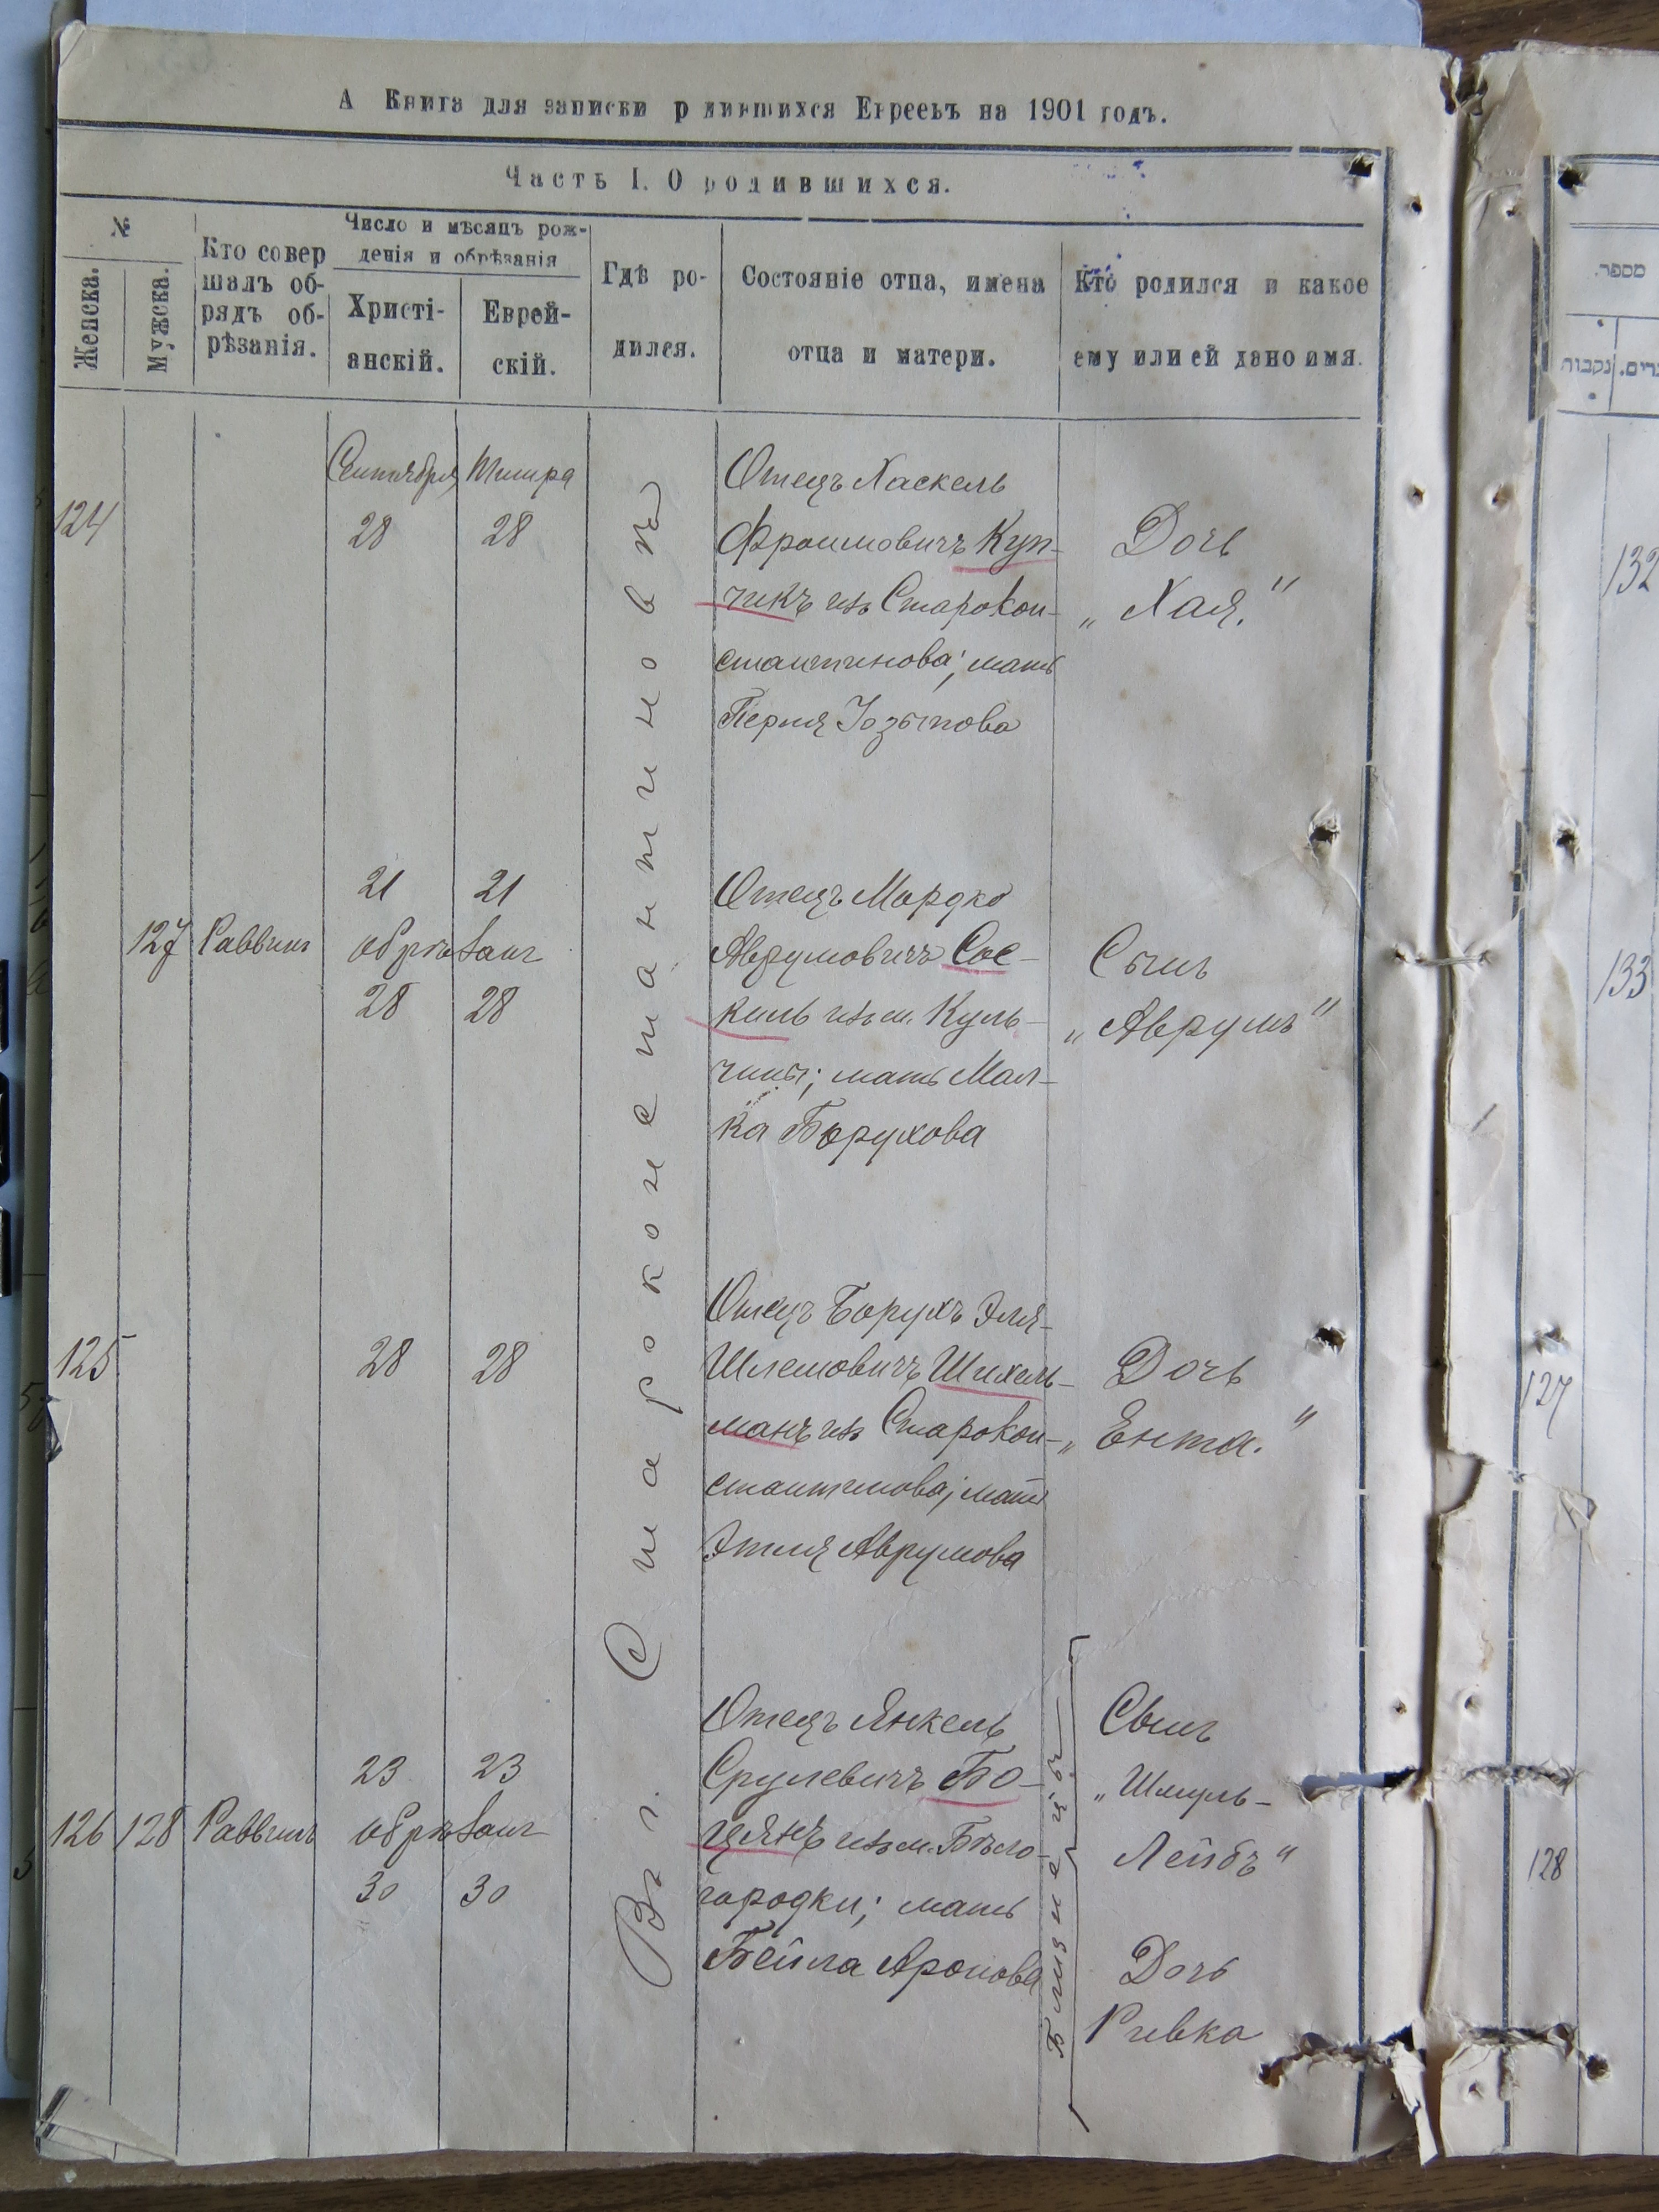 А Книга для записки родившихся Евреевъ на 1901 годъ.
Часть I. О родившихся.
№
Женска.
Мужска.
Кто совер
шалъ об-
рядъ об-
рѣзанія.
Число и мѣсяцъ рож-
денія и обрѣзанія
Христі-
анскій.
Еврей-
скій.
Гдѣ ро-
дился.
Состояніе отца, имена
отца и матери.
Кто родился и какое
ему или ей дано имя.
Въ г. Староконстантиновѣ
Сентября Тишра
124 28 28
Отецъ Хаскель
Фроимовичъ Куп-
чикъ изъ Старокон-
стантинова; мать
Перля Іозыпова
Дочь
„Хая."
21 21
127 Раввинъ обрѣзанъ
28 28
Отецъ Мордко
Аврумовичъ Сос-
кинь изъ м. Куль-
чины; мать Мал-
ка Борухова
Сынъ
„Аврумъ"
125 28 28
Отецъ Борухъ Эля-
Шлемовичъ Шихель-
манъ изъ Старокон-
стантинова; мать
Этля Аврумова
Дочь
„Ента."
23 23
126 128 Раввинъ обрѣзанъ
30 30
Отецъ Янкель
Срулевичъ Бо-
цянъ изъ м. Бѣло-
городки; мать
Бейла Аронова
Близнецы
Сынъ
„Шмуль-
Лейбъ"
Дочь
Ривка
מספר.
נקבות
132
133
127
128